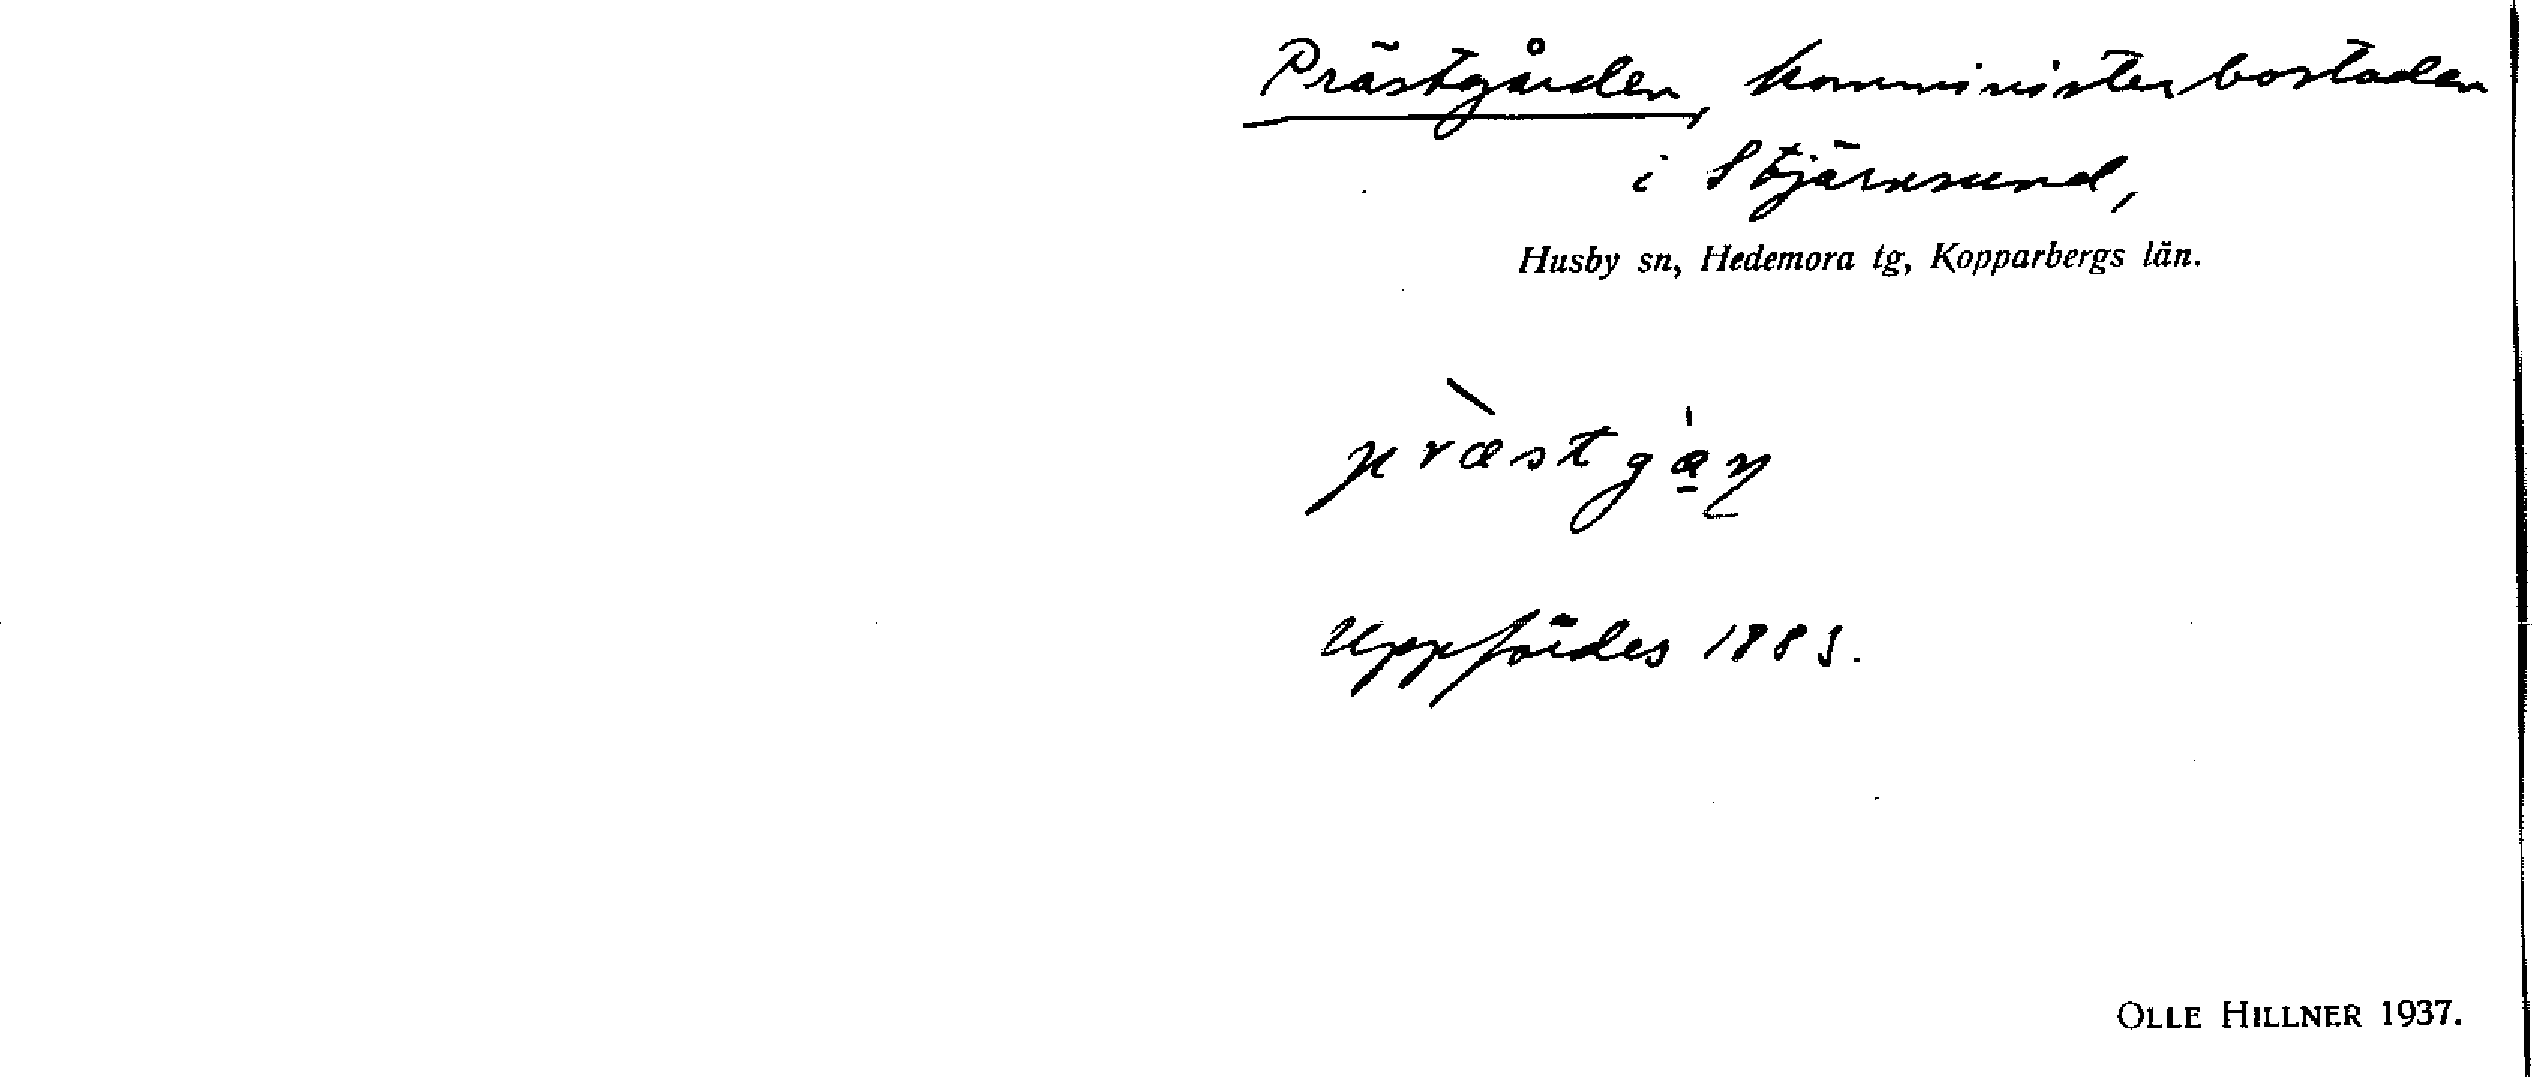 Prästgården, komministerbostaden
i Stjärnsund,
Husby sn, Hedemora tg, Kopparbergs län.
Uppfördes 1883.
OLLE HILLNER 1937.